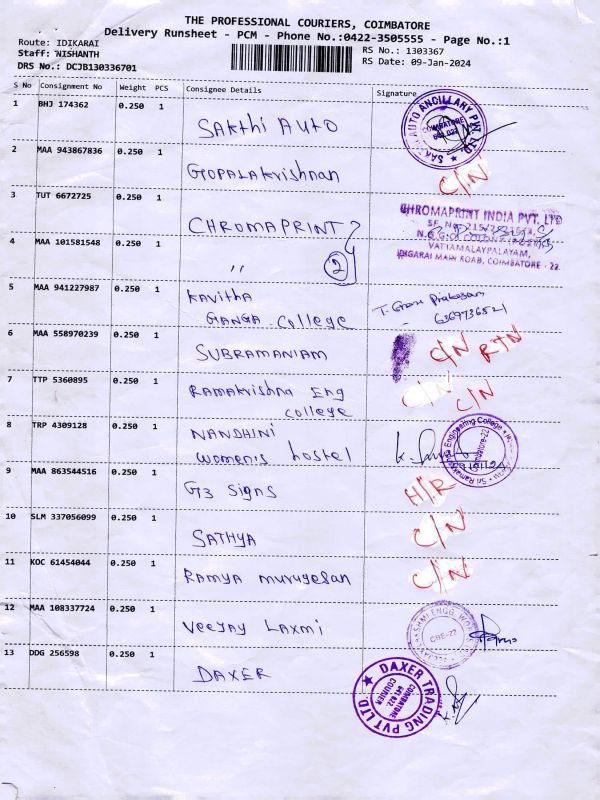 THE PROFESSIONAL COURIERS, COIMBATORE
Delivery Runsheet - PCM - Phone No.:0422-3505555 - Page No.:1
Route: IDIKARAI
RS No.: 1303367
Staff: NISHANTH
RS Date: 09-Jan-2024
DRS No.: DCJB130336701
S No Consignment No Weight PCS Consignee Details Signature
1 BHJ 174362 0.250 1 Sakthi Auto
AUTO ANCILLARY PVT LTD
COIMBATORE
2 MAA 943867836 0.250 1 Gopalakrishnan C/N
3 TUT 6672725 0.250 1 CHROMAPRINT
CHROMAPRINT INDIA PVT. LTD
VATTAMALAYPALAYAM,
IDIGARAI MAIN ROAD, COIMBATORE - 22
4 MAA 101581548 0.250 1 " 2
5 MAA 941227987 0.250 1 Kavitha
GANGA College
6369736521
6 MAA 558970239 0.250 1 SUBRAMANIAM C/N RTN
7 TTP 5360895 0.250 1 Ramakrishna Eng
college
C/N C/N
8 TRP 4309128 0.250 1 NANDHINI
women's hostel
Engineering College
9 MAA 863544516 0.250 1 G3 Signs H/R
10 SLM 337056099 0.250 1 SATHYA C/N
11 KOC 61454044 0.250 1 Ramya murugesan C/N
12 MAA 108337724 0.250 1 Veejay Laxmi
ENGG. WORKS
CBE-22
13 DDG 256598 0.250 1 DAXER
DAXER TRADING PVT LTD
COIMBATORE
641 022
COURIER